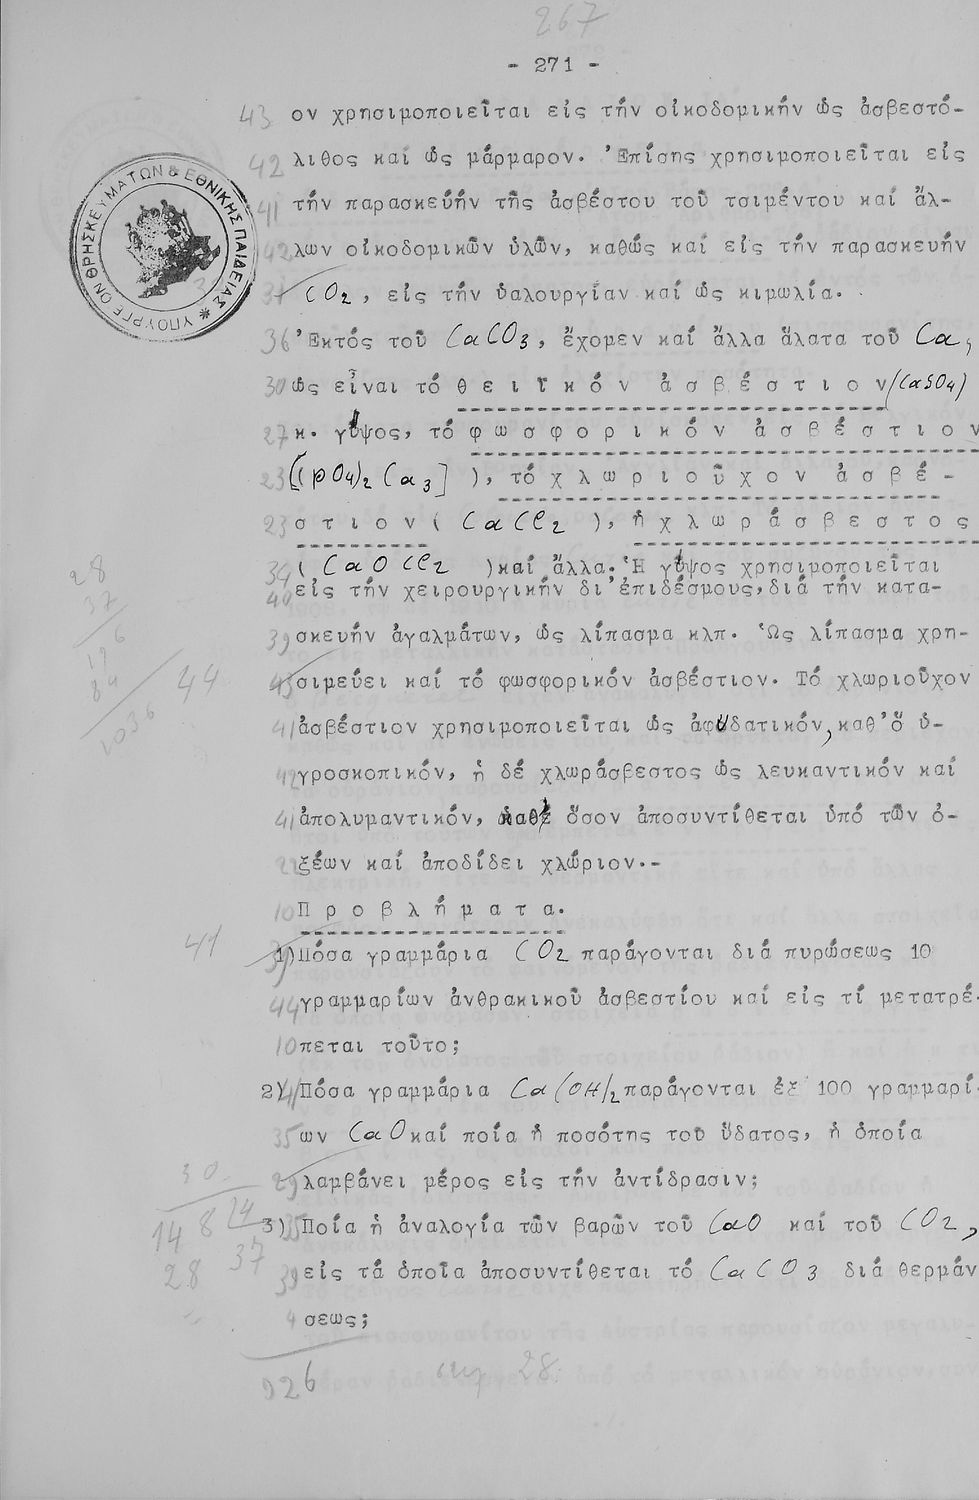 267
- 271 -
43 ον χρησιμοποιεῖται εἰς τήν οἰκοδομικήν ὡς ἀσβεστό-
42 λιθος καί ὡς μάρμαρον. Ἐπίσης χρησιμοποιεῖται εἰς
41 τήν παρασκευήν τῆς ἀσβέστου τοῦ τσιμέντου καί ἄλ-
42 λων οἰκοδομικῶν ὑλῶν, καθώς καί εἰς τήν παρασκευήν
CO2, εἰς τήν ὑαλουργίαν καί ὡς κιμωλία.
ΥΠΟΥΡΓΕΙΟΝ ΘΡΗΣΚΕΥΜΑΤΩΝ & ΕΘΝΙΚΗΣ ΠΑΙΔΕΙΑΣ
36 Ἐκτός τοῦ CaCO3, ἔχομεν καί ἄλλα ἅλατα τοῦ Ca,
30 ὡς εἶναι τό θειϊκόν ἀσβέστιον (CaSO4)
27 κ. γύψος, τό φωσφορικόν ἀσβέστιον
23 [(PO4)2 Ca3] ), τό χλωριοῦχον ἀσβέ-
23 στιον ( CaCl2 ), ἡ χλωράσβεστος
34 ( CaOCl2 ) καί ἄλλα. Ἡ γύψος χρησιμοποιεῖται
40 εἰς τήν χειρουργικήν δι' ἐπιδέσμους, διά τήν κατα-
39 σκευήν ἀγαλμάτων, ὡς λίπασμα κλπ. Ὡς λίπασμα χρη-
43 σιμεύει καί τό φωσφορικόν ἀσβέστιον. Τό χλωριοῦχον
41 ἀσβέστιον χρησιμοποιεῖται ὡς ἀφυδατικόν, καθ' ὅ ὑ-
42 γροσκοπικόν, ἡ δέ χλωράσβεστος ὡς λευκαντικόν καί
41 ἀπολυμαντικόν, καθ' ὅσον ἀποσυντίθεται ὑπό τῶν ὀ-
22 ξέων καί ἀποδίδει χλώριον.-
10 Προβλήματα.
41
1) Πόσα γραμμάρια CO2 παράγονται διά πυρώσεως 10
44 γραμμαρίων ἀνθρακικοῦ ἀσβεστίου καί εἰς τί μετατρέ-
10 πεται τοῦτο;
2) 41 Πόσα γραμμάρια Ca(OH)2 παράγονται ἐξ 100 γραμμαρί-
35 ων CaO καί ποία ἡ ποσότης τοῦ ὕδατος, ἡ ὁποία
29 λαμβάνει μέρος εἰς τήν ἀντίδρασιν;
3) Ποία ἡ ἀναλογία τῶν βαρῶν τοῦ CaO καί τοῦ CO2,
39 εἰς τά ὁποῖα ἀποσυντίθεται τό CaCO3 διά θερμάν
4 σεως;
926
28
28
37
6
19
84
1036
44
30
14 8 24
28 37